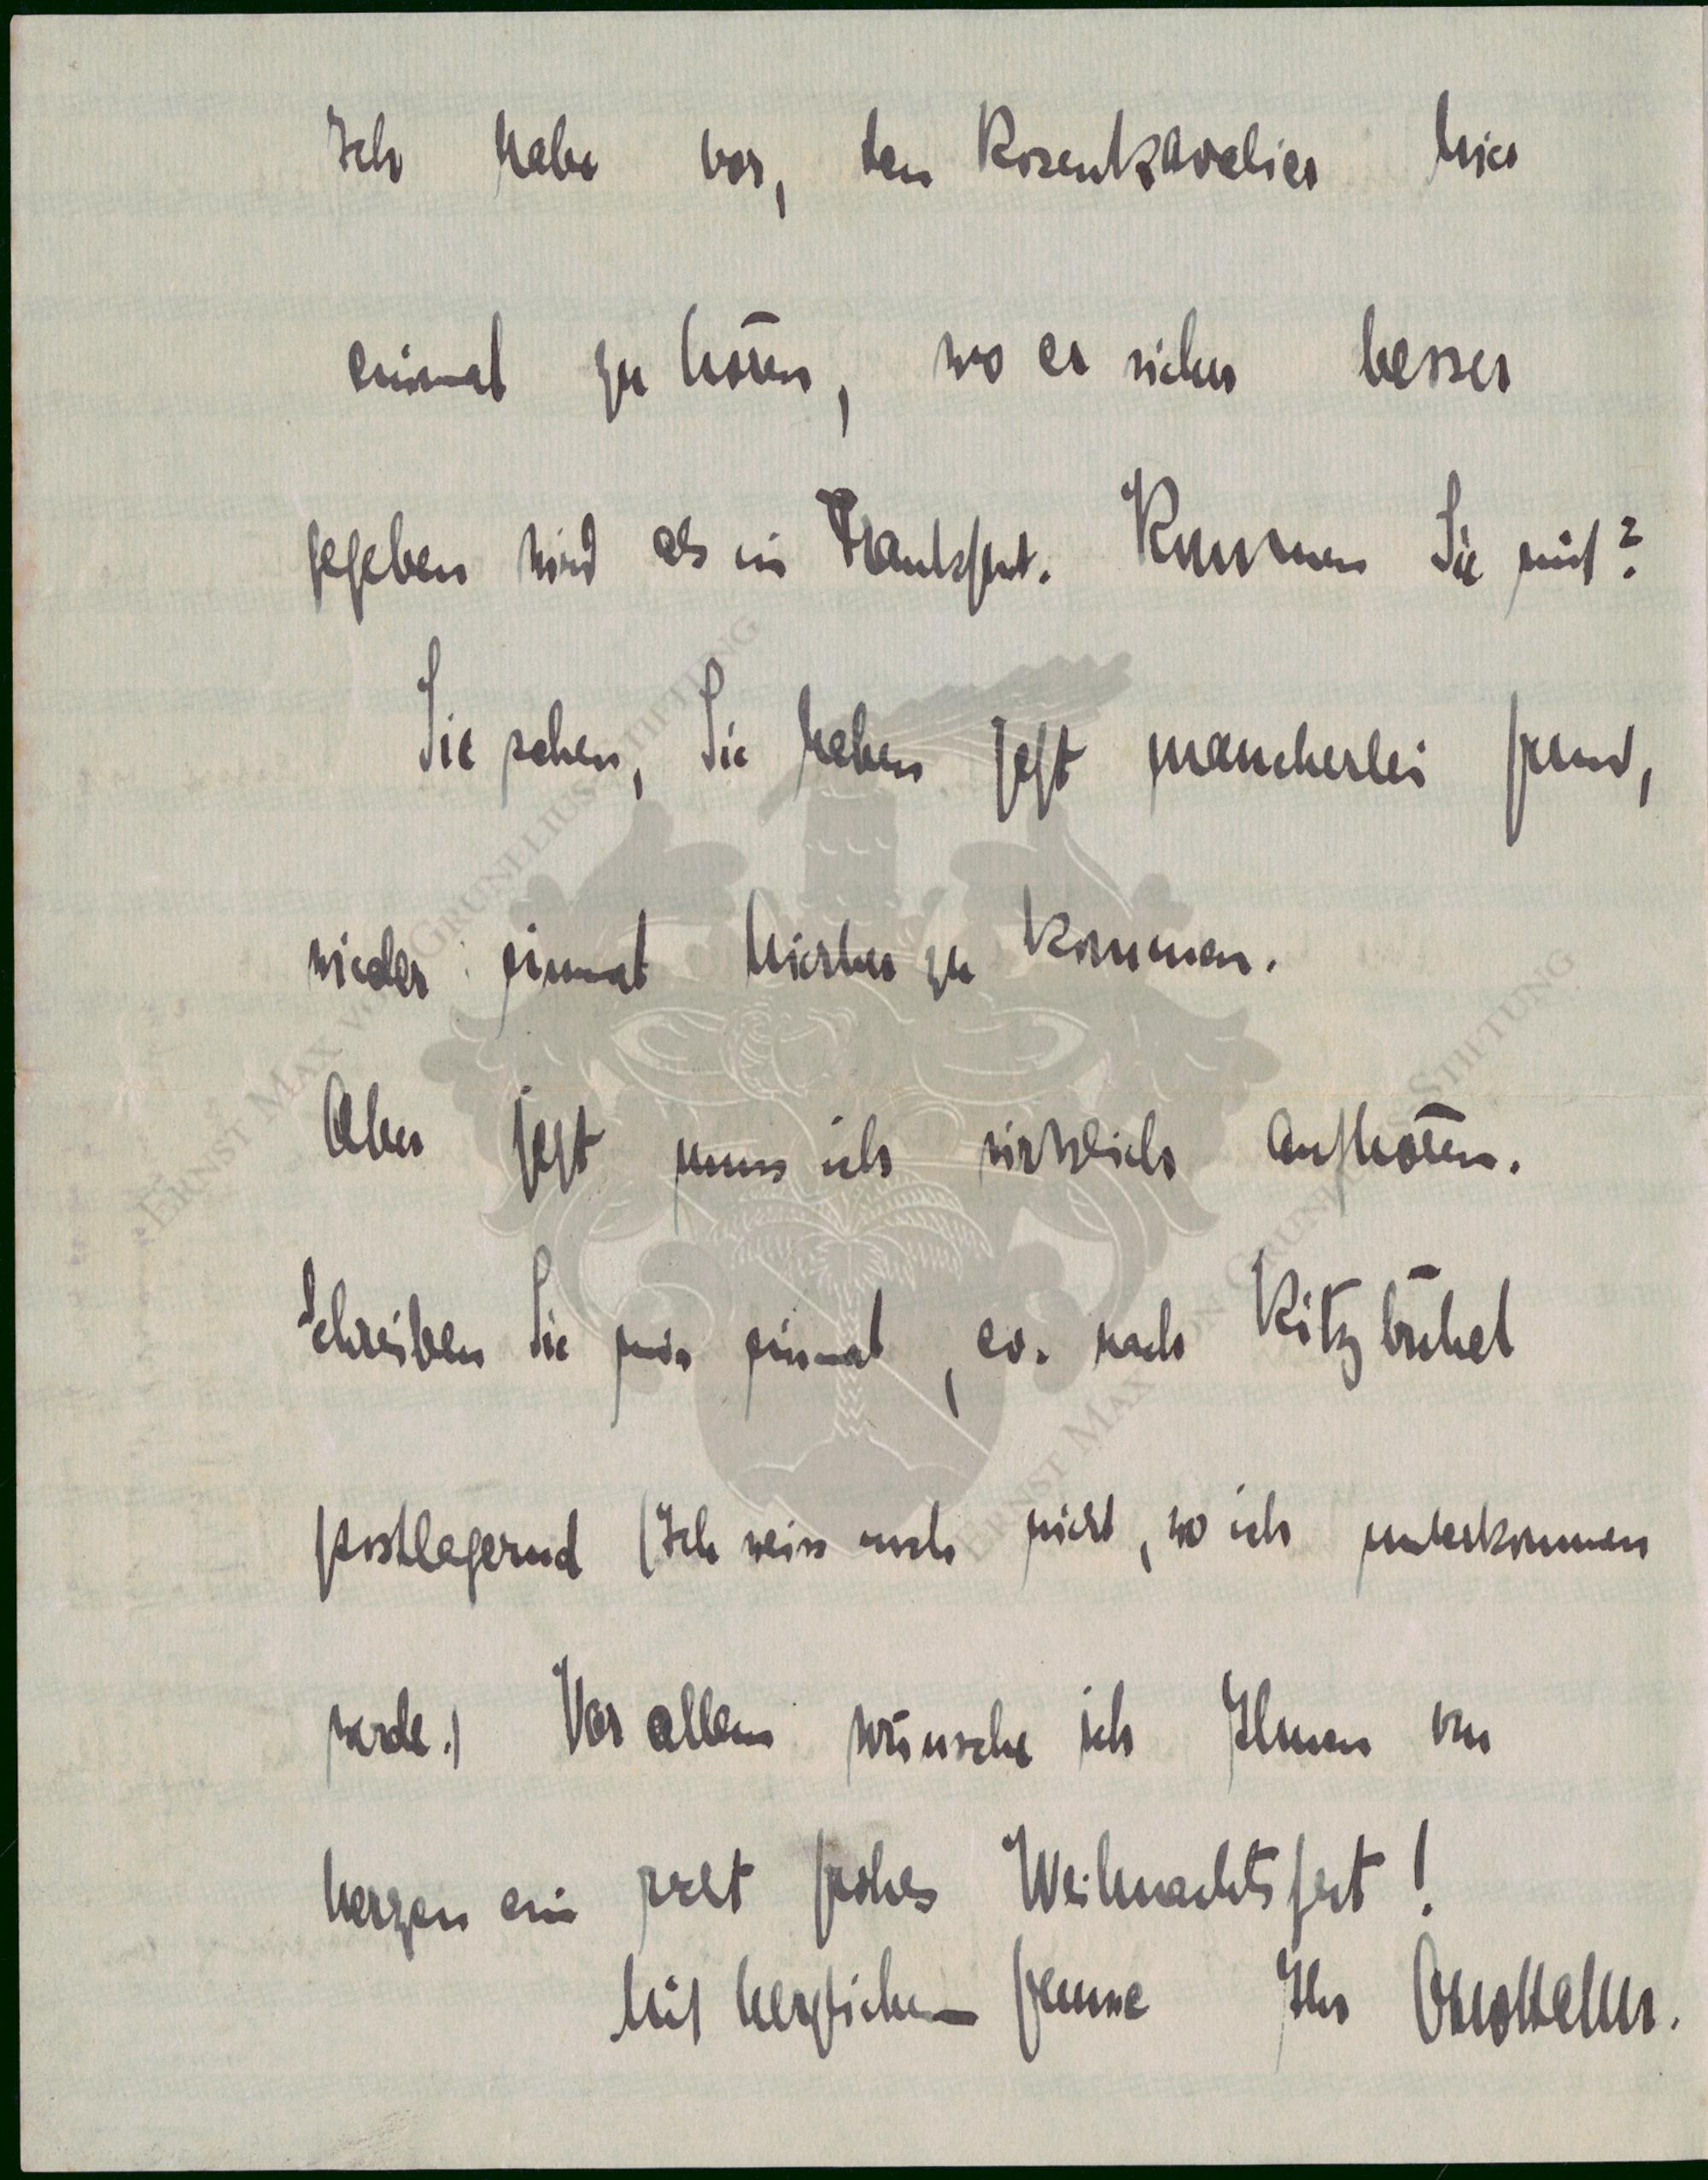 Ich habe vor, den Rosenkavalier hier
einmal zu hören, wo er sicher besser
gegeben wird als in Frankfurt. Kommen Sie mit?
Sie sehen, Sie haben jetzt mancherlei Grund,
wieder einmal hierher zu kommen.
Aber jetzt muss ich wirklich aufhören.
Schreiben Sie mir einmal, ev. nach Kitzbühel
postlagernd (Ich weiss noch nicht, wo ich unterkommen
werde.) Vor allem wünsche ich Ihnen von
herzen ein recht frohes Weihnachtsfest!
Mit herzlichem Grusse Ihr
ERNST MAX VON GRUNELIUS-STIFTUNG
ERNST MAX VON GRUNELIUS-STIFTUNG